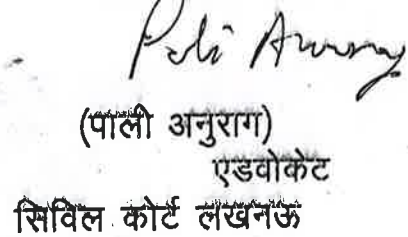 Pali Anurag
(पाली अनुराग)
एडवोकेट
सिविल कोर्ट लखनऊ